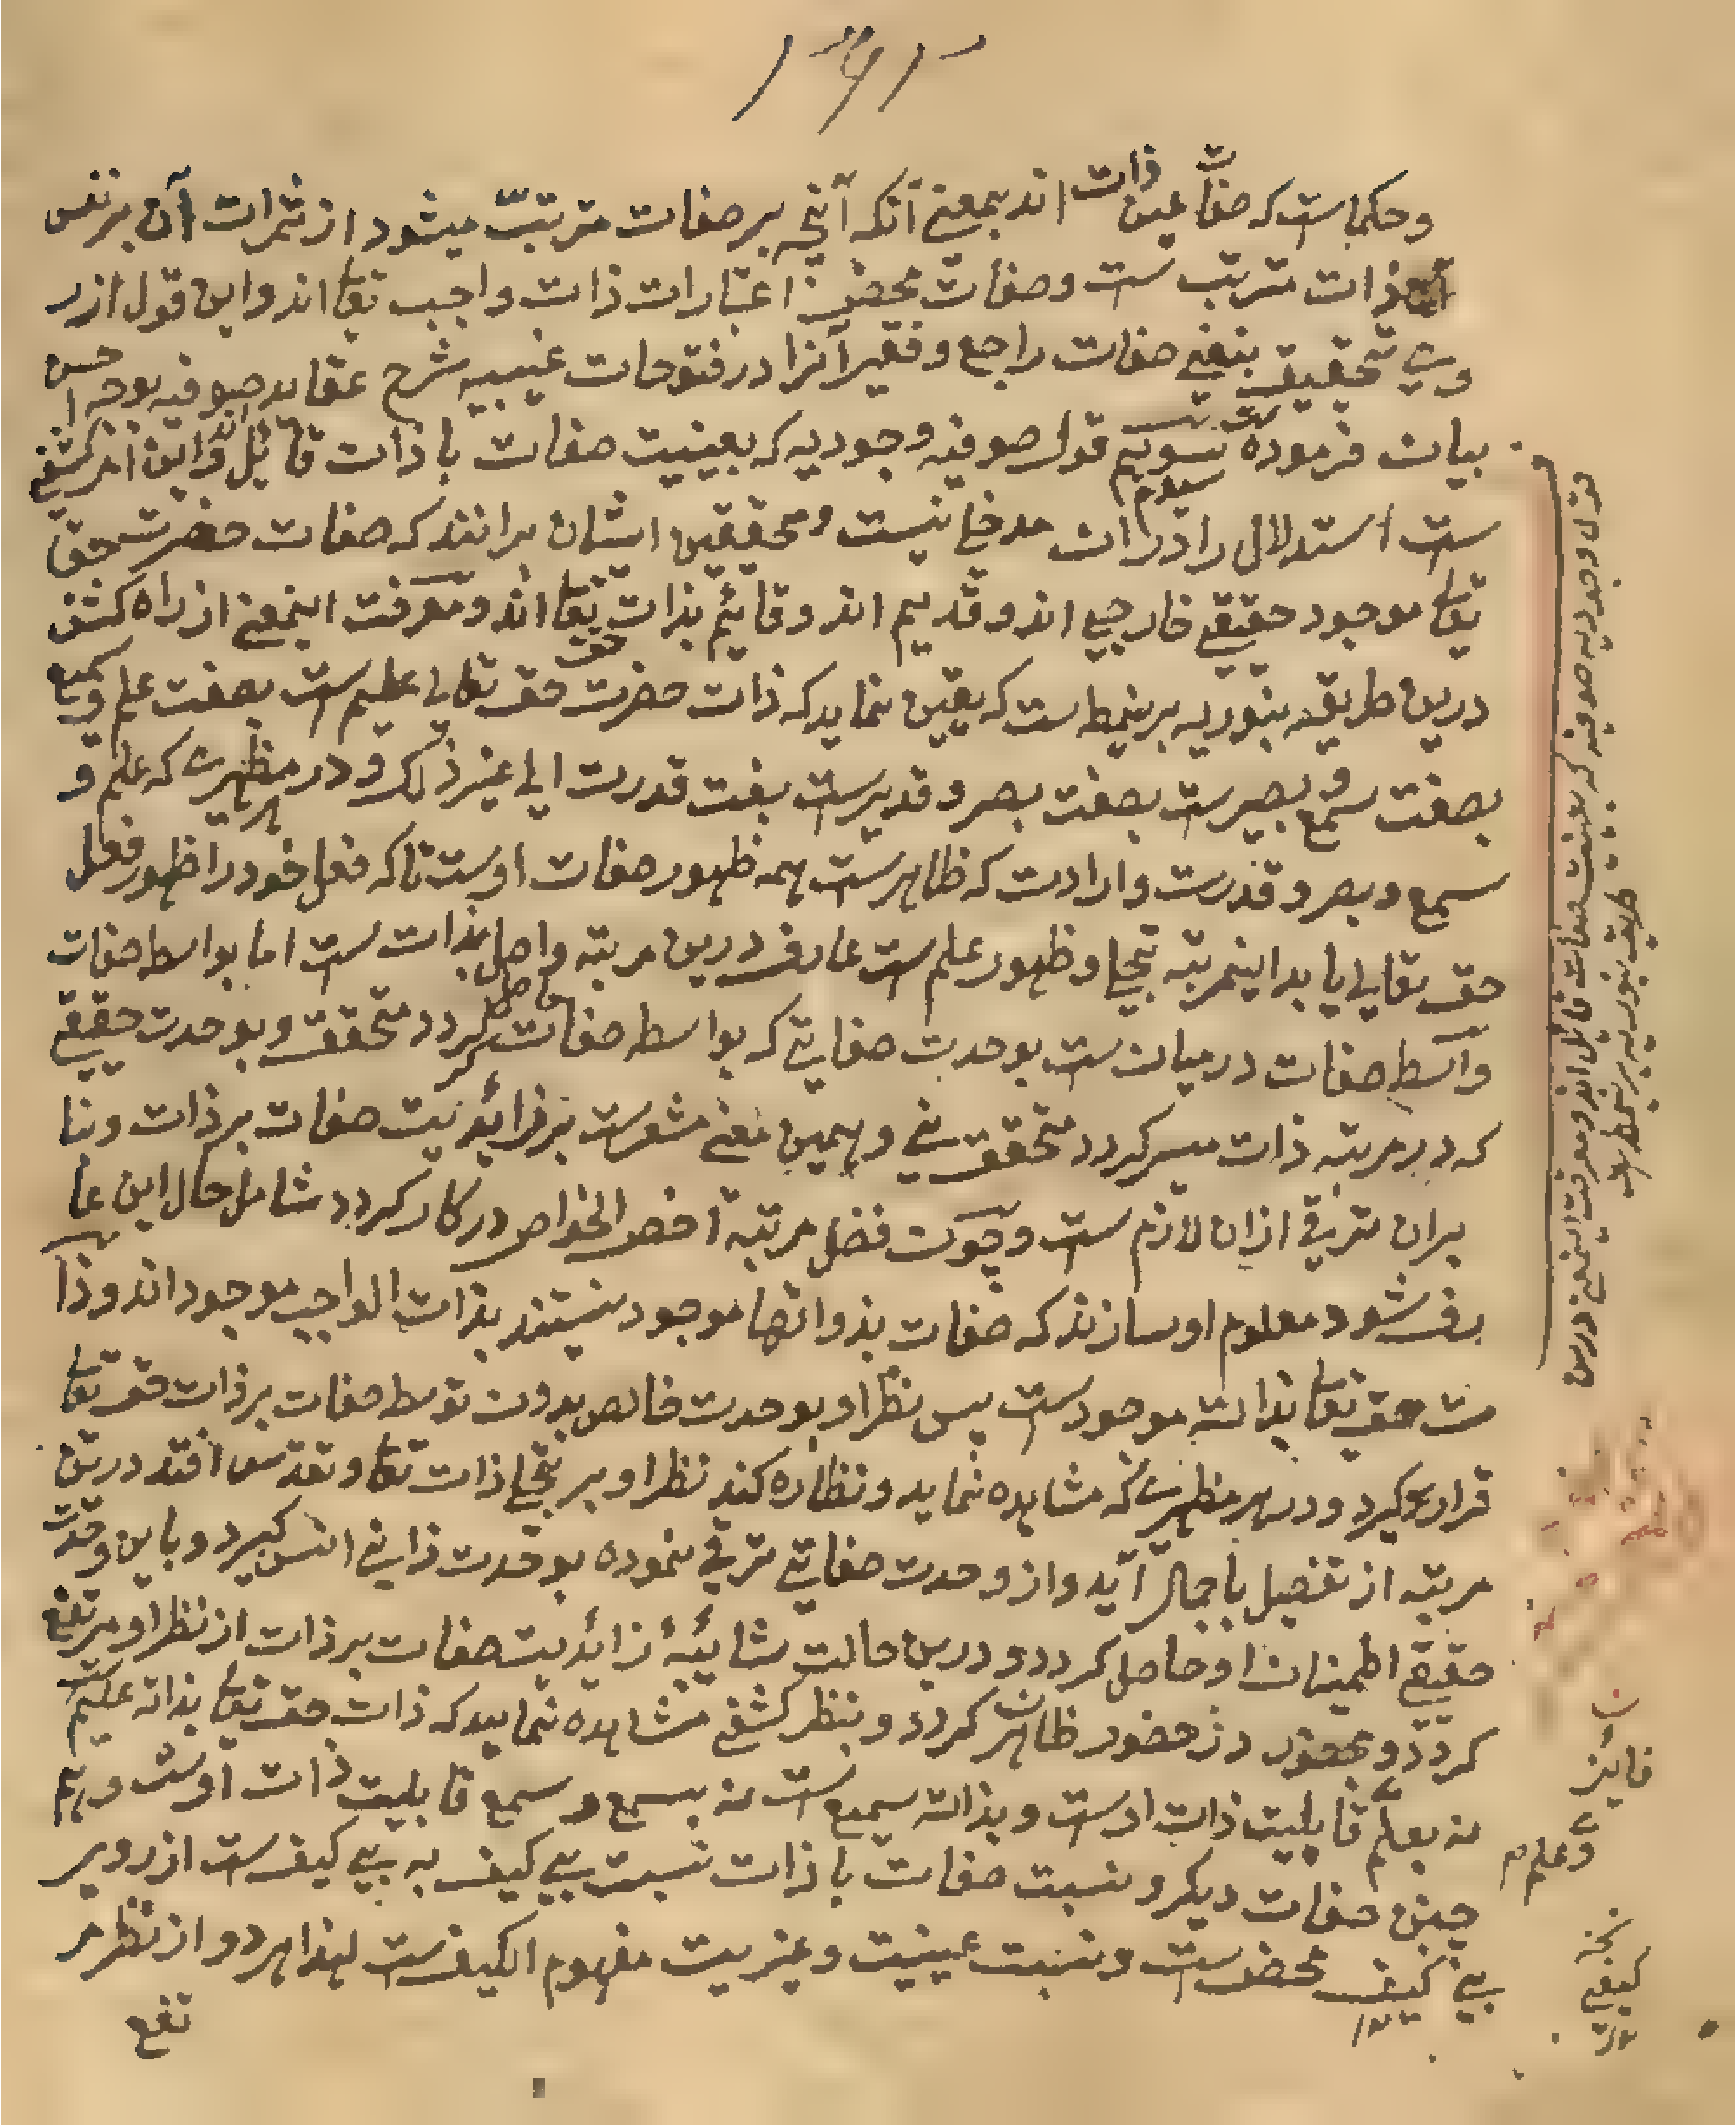 وحکماست که صفات عین ذات اند بمعنی آنکه آنچه بر صفات مترتب میشود از ثمرات آن بر نفس
ذات مترتب ست وصفات محض اعتبارات ذات واجب تعا اند واین قول از ر
وی تحقیق بنفی صفات راجع وفقیر آنرا در فتوحات غیبیه شرح عقاید صوفیه بوجه احسن
بیان فرموده ست سویم قول صوفیه وجودیه که بعینیت صفات با ذات قایل اند واین امر کشفی
ست استدلال را دران مدخلی نیست ومحققین ایشان برانند که صفات حضرت حق
تعا موجود حقیقی خارجی اند وقدیم اند وقایم بذات حق تعا اند ومعرفت اینمعنی از راه کشف
درین طریقه بنوریه برینمط ست که یقین نماید که ذات حضرت حق تعالی علیم ست بصفت علم وسمیع
بصفت سمع وبصیرست بصفت بصر وقدیرست بصفت قدرت الی غیر ذلک ودر هر مظهری که علم و
سمع وبصر وقدرت وارادت که ظاهرست همه ظهور صفات اوست تا که فعل خود را ظهور فعل
حق تعالی یابد اینمرتبه تجلی وظهور علم ست عارف درین مرتبه واصل بذات ست اما بواسط صفات
واسط صفات درمیان ست بوحدت صفاتی که بواسط صفات حاصل گردد متحقق وبوحدت حقیقی
که در مرتبه ذات میسر گردد متحقق نی وهمین معنی مشعرست بر زایدیت صفات بر ذات وبنا
بران ترقی ازان لازم ست وچون فضل مرتبه اخص الخواص در کار گردد شامل حال این عا
رف شود معلوم او سازند که صفات بذواتها موجود نیستند بذات الواجب موجود اند وذا
ت حق تعا بذاته موجودست پس نظر او بوحدت خالص بدون توسط صفات بر ذات حق تعا
قرار گیرد ودر هر مظهری که مشاهده نماید ونظاره کند نظر او بر تجلی ذات تعا وتقدس افتد درین
مرتبه از تفصیل باجمال آید واز وحدت صفاتی ترقی نموده بوحدت ذاتی انس گیرد وباین وحدت
حقیقی اطمینان او حاصل گردد ودرین حالت شائبهٔ زایدیت صفات بر ذات از نظر او مرتفع
گردد وبحضور در حضور ظاهر گردد وبنظر کشفی مشاهده نماید که ذات حق تعا بذاته علیم ست
نه بعلم قابلیت ذات اوست وبذاته سمیع ست نه بسمع وسمع قابلیت ذات اوست وهم
چنین صفات دیگر ونسبت صفات با ذات نسبت بی کیف به بی کیف ست از روی
بی کیف محض ست ونسبت عینیت وغیریت مفهوم الکیف ست لهذا هر دو از نظر مر
تفع
قول وجودیه صوفیه که بعینیت صفات قایل اند ومعرفت اینمعنی درین
طریقه بنوریه برینمط ست
فایز
وعلم